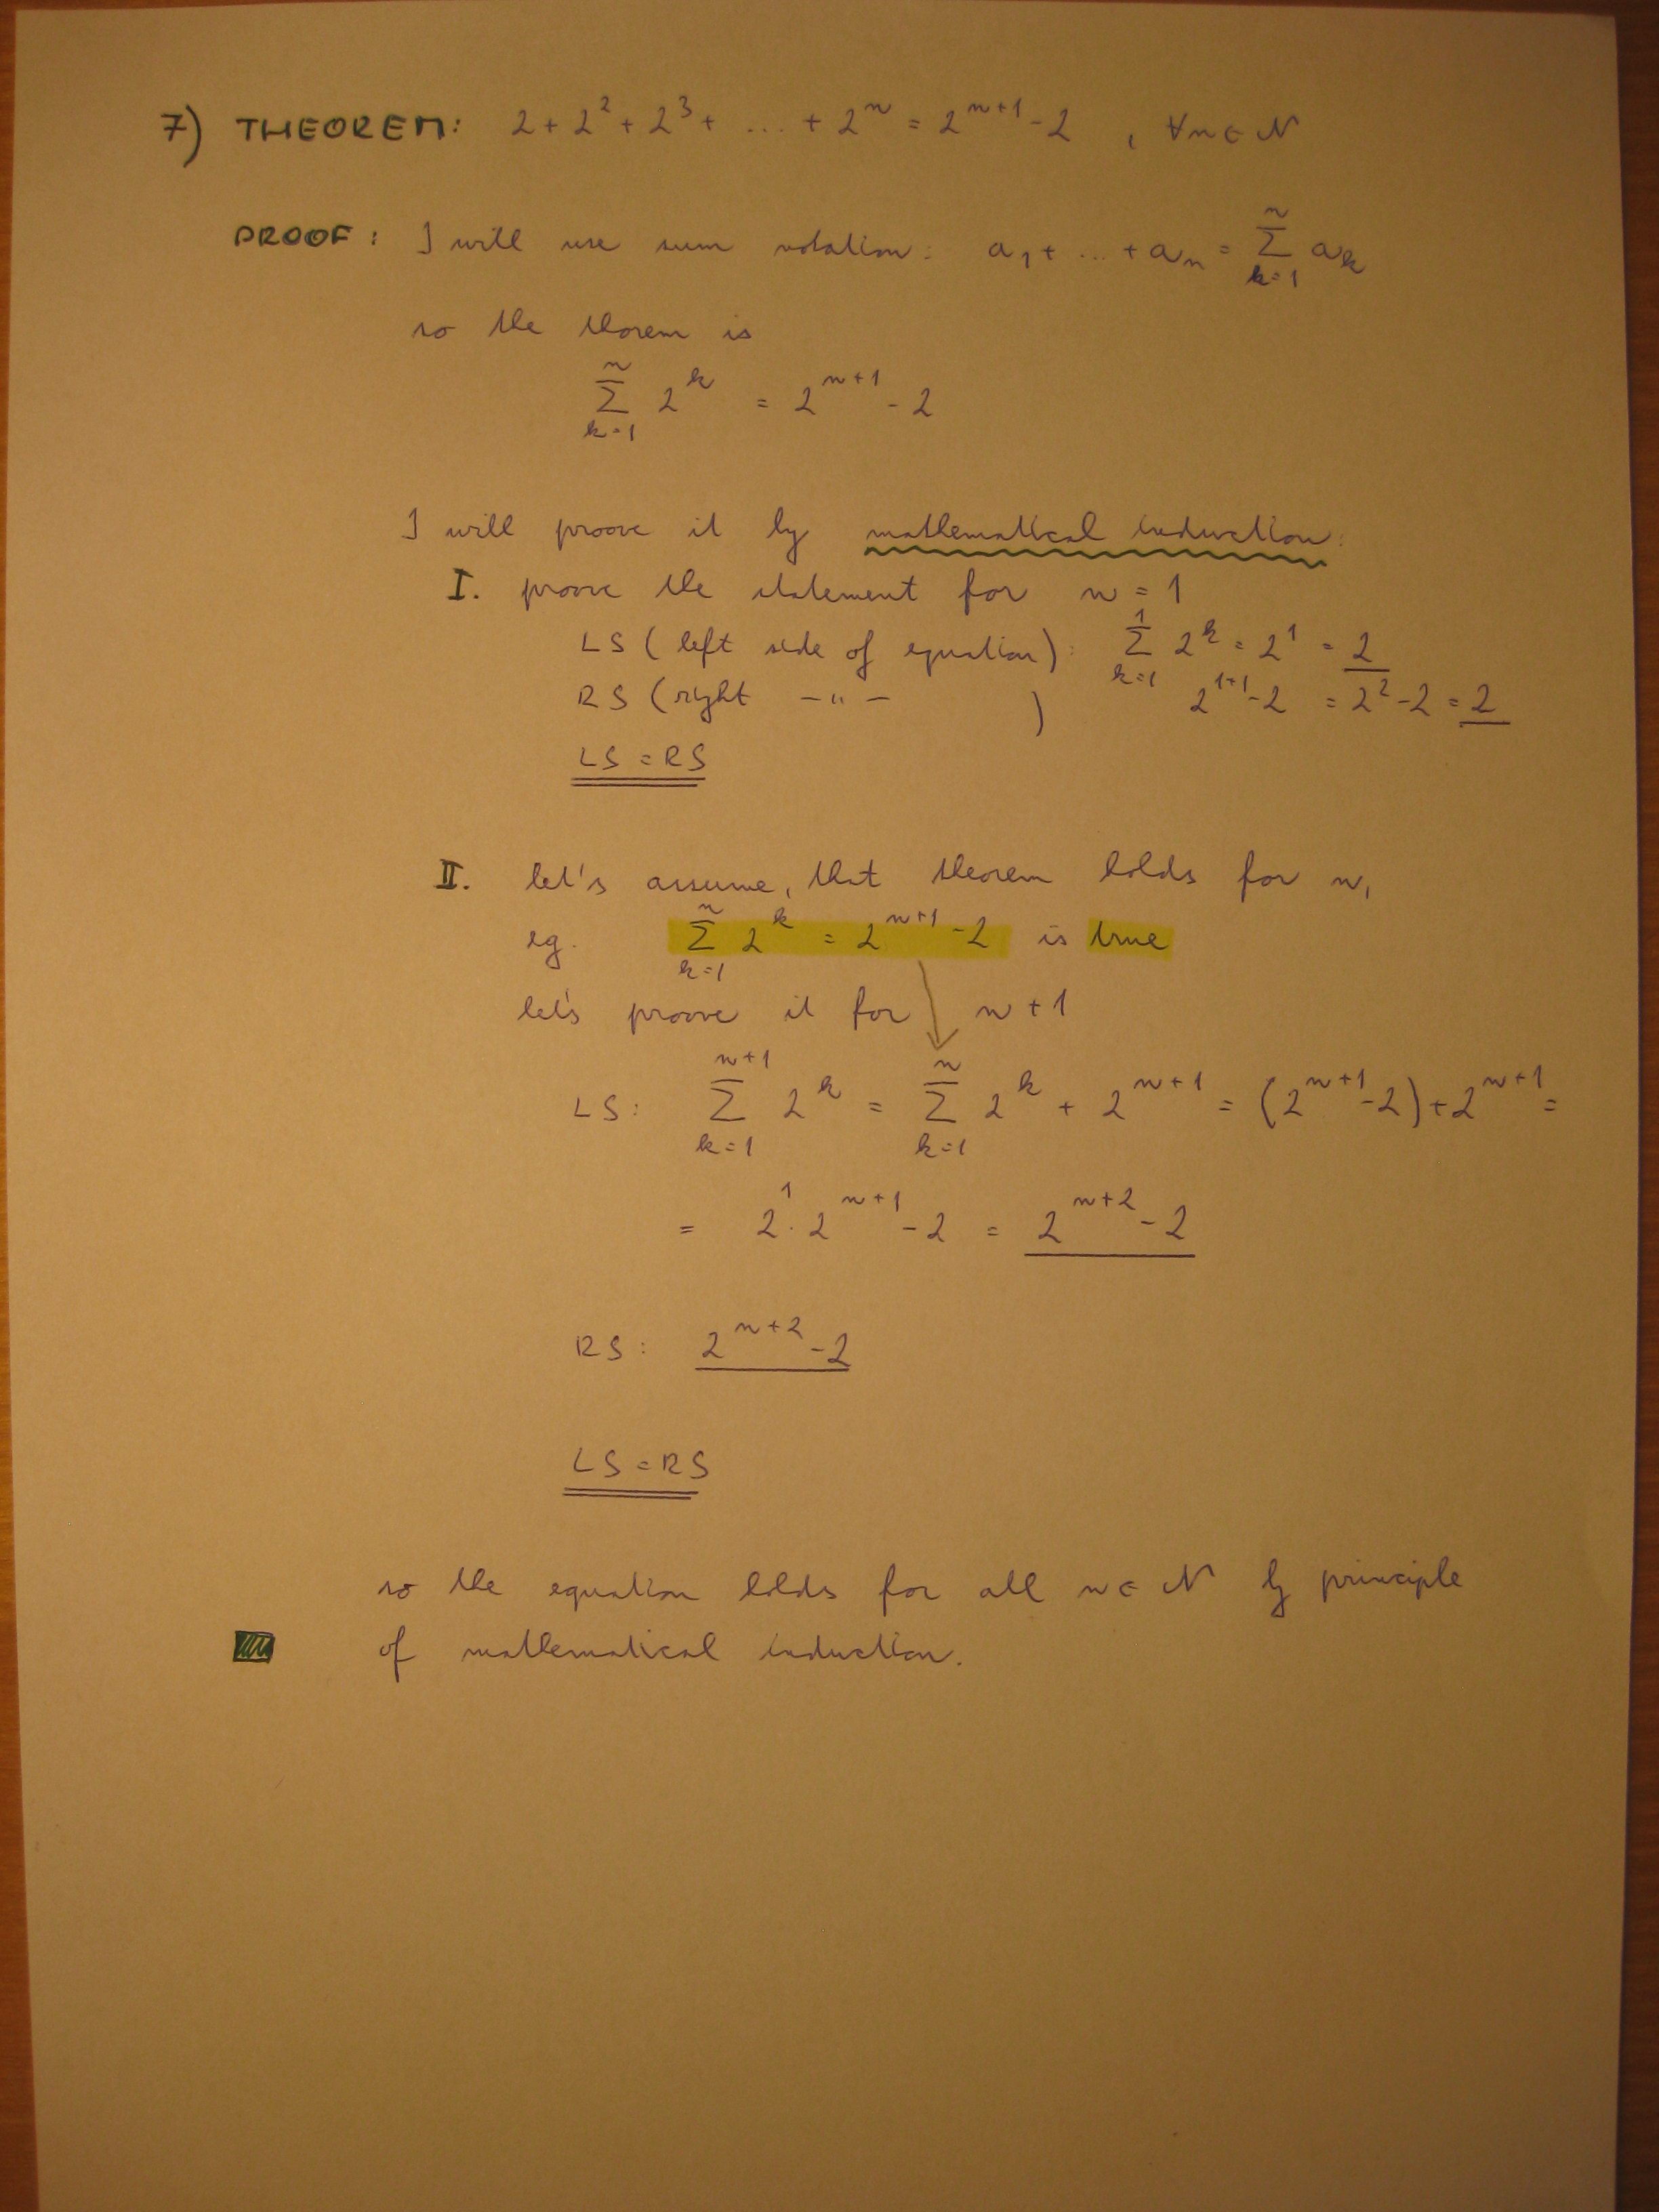 7) THEOREM: 2 + 2² + 2³ + ... + 2ⁿ = 2ⁿ⁺¹ - 2 , ∀n∈N
PROOF: I will use sum notation: a₁ + ... + aₙ = ∑ₖ₌₁ⁿ aₖ
so the thorem is
∑ₖ₌₁ⁿ 2ᵏ = 2ⁿ⁺¹ - 2
I will proove it by mathematical induction:
I. proove the statement for n = 1
LS (left side of equation): ∑ₖ₌₁¹ 2ᵏ = 2¹ = 2
RS (right -"- ) 2¹⁺¹ - 2 = 2² - 2 = 2
LS = RS
II. let's assume, that theorem holds for n,
eg. ∑ₖ₌₁ⁿ 2ᵏ = 2ⁿ⁺¹ - 2 is true
let's proove it for n + 1
LS: ∑ₖ₌₁ⁿ⁺¹ 2ᵏ = ∑ₖ₌₁ⁿ 2ᵏ + 2ⁿ⁺¹ = (2ⁿ⁺¹ - 2) + 2ⁿ⁺¹ =
= 2¹ · 2ⁿ⁺¹ - 2 = 2ⁿ⁺² - 2
RS: 2ⁿ⁺² - 2
LS = RS
so the equation holds for all n∈N by principle
of mathematical induction.